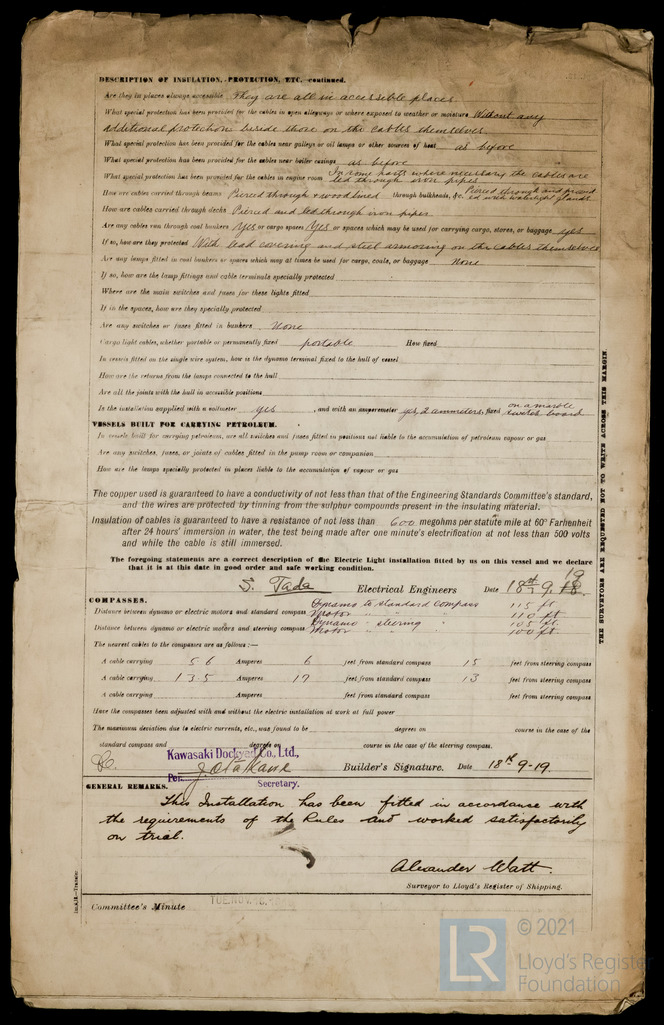 DESCRIPTION OF INSULATION, PROTECTION, ETC. continued.
Are they in places always accessible They are all in accessible places
What special protection has been provided for the cables in open alleyways or where exposed to weather or moisture Without any
additional protection beside those on the cables themselves
What special protection has been provided for the cables near galleys or oil lamps or other sources of heat as before
What special protection has been provided for the cables near boiler casings as before
What special protection has been provided for the cables in engine room In some parts where necessary the cables are led through iron pipes
How are cables carried through beams Pierced through & wood lined through bulkheads, &c. Pierced through and provided with watertight glands
How are cables carried through decks Pierced and led through iron pipes
Are any cables run through coal bunkers Yes or cargo spaces Yes or spaces which may be used for carrying cargo, stores, or baggage yes
If so, how are they protected With lead covering and steel armoring on the cables themselves
Are any lamps fitted in coal bunkers or spaces which may at times be used for cargo, coals, or baggage None
If so, how are the lamp fittings and cable terminals specially protected
Where are the main switches and fuses for these lights fitted
If in the spaces, how are they specially protected
Are any switches or fuses fitted in bunkers None
Cargo light cables, whether portable or permanently fixed portable How fixed
In vessels fitted on the single wire system, how is the dynamo terminal fixed to the hull of vessel
How are the returns from the lamps connected to the hull
Are all the joints with the hull in accessible positions
Is the installation supplied with a voltmeter yes, and with an amperemeter yes, 2 ammeters, fixed on a marble switch board
VESSELS BUILT FOR CARRYING PETROLEUM.
In vessels built for carrying petroleum, are all switches and fuses fitted in positions not liable to the accumulation of petroleum vapour or gas
Are any switches, fuses, or joints of cables fitted in the pump room or companion
How are the lamps specially protected in places liable to the accumulation of vapour or gas
The copper used is guaranteed to have a conductivity of not less than that of the Engineering Standards Committee's standard,
and the wires are protected by tinning from the sulphur compounds present in the insulating material.
Insulation of cables is guaranteed to have a resistance of not less than 600 megohms per statute mile at 60° Farhenheit
after 24 hours' immersion in water, the test being made after one minute's electrification at not less than 500 volts
and while the cable is still immersed.
The foregoing statements are a correct description of the Electric Light installation fitted by us on this vessel and we declare
that it is at this date in good order and safe working condition.
S. Tada Electrical Engineers Date 18th 9. 19
COMPASSES.
Distance between dynamo or electric motors and standard compass Dynamo to standard compass 115 ft
Motor " " " 110 ft
Distance between dynamo or electric motors and steering compass Dynamo " steering " 105 ft.
Motor " " " 100 ft.
The nearest cables to the compasses are as follows:—
A cable carrying 56 Amperes 6 feet from standard compass 15 feet from steering compass
A cable carrying 135 Amperes 17 feet from standard compass 13 feet from steering compass
A cable carrying Amperes feet from standard compass feet from steering compass
Have the compasses been adjusted with and without the electric installation at work at full power
The maximum deviation due to electric currents, etc., was found to be degrees on course in the case of the
standard compass and degrees on course in the case of the steering compass.
Kawasaki Dockyard Co., Ltd.,
Per Secretary. Builder's Signature. Date 18th 9-19.
GENERAL REMARKS.
This Installation has been fitted in accordance with
the requirements of the Rules and worked satisfactorily
on trial.
Alexander Watt.
Surveyor to Lloyd's Register of Shipping.
Committee's Minute TUE. NOV.
THE SURVEYORS ARE REQUESTED NOT TO WRITE ACROSS THIS MARGIN
© 2021
LR Lloyd's Register
Foundation